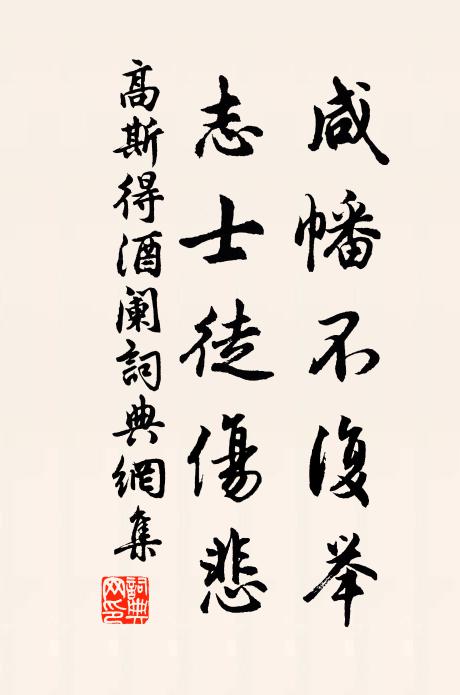 咸幡不復举
志士徒傷悲
高斯得酒阑詞典網集
詞典網印